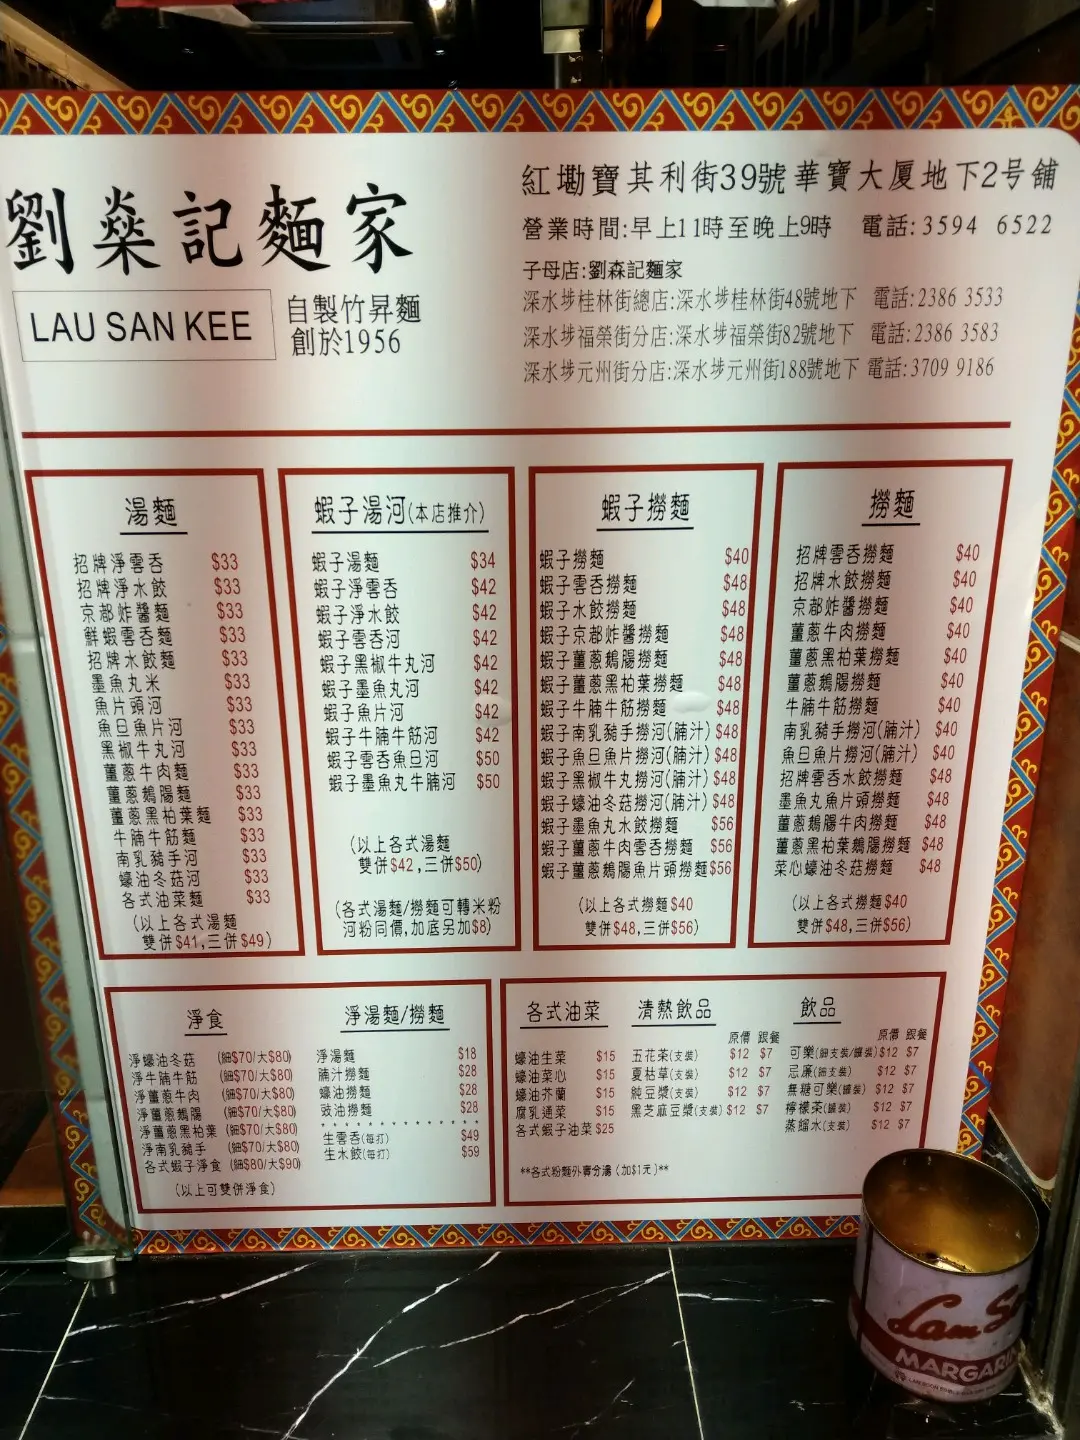 劉燊記麵家
LAU SAN KEE
自製竹昇麵
創於1956
紅磡寶其利街39號華寶大厦地下2号舖
營業時間:早上11時至晚上9時 電話:3594 6522
子母店:劉森記麵家
深水埗桂林街總店:深水埗桂林街48號地下 電話:2386 3533
深水埗福榮街分店:深水埗福榮街82號地下 電話:2386 3583
深水埗元州街分店:深水埗元州街188號地下 電話:3709 9186
湯麵
招牌淨雲吞 $33
招牌淨水餃 $33
京都炸醬麵 $33
鮮蝦雲吞麵 $33
招牌水餃麵 $33
墨魚丸米 $33
魚片頭河 $33
魚旦魚片河 $33
黑椒牛丸河 $33
薑蔥牛肉麵 $33
薑蔥鵝腸麵 $33
薑蔥黑柏葉麵 $33
牛腩牛筋麵 $33
南乳豬手河 $33
蠔油冬菇河 $33
各式油菜麵 $33
(以上各式湯麵
雙併$41,三併$49)
蝦子湯河(本店推介)
蝦子湯麵 $34
蝦子淨雲吞 $42
蝦子淨水餃 $42
蝦子雲吞河 $42
蝦子黑椒牛丸河 $42
蝦子墨魚丸河 $42
蝦子魚片河 $42
蝦子牛腩牛筋河 $42
蝦子雲吞魚旦河 $50
蝦子墨魚丸牛腩河 $50
(以上各式湯麵
雙併$42,三併$50)
(各式湯麵/撈麵可轉米粉
河粉同價,加底另加$8)
蝦子撈麵
蝦子撈麵 $40
蝦子雲吞撈麵 $48
蝦子水餃撈麵 $48
蝦子京都炸醬撈麵 $48
蝦子薑蔥鵝腸撈麵 $48
蝦子薑蔥黑柏葉撈麵 $48
蝦子牛腩牛筋撈麵 $48
蝦子南乳豬手撈河(腩汁) $48
蝦子魚旦魚片撈河(腩汁) $48
蝦子黑椒牛丸撈河(腩汁) $48
蝦子蠔油冬菇撈河(腩汁) $48
蝦子墨魚丸水餃撈麵 $56
蝦子薑蔥牛肉雲吞撈麵 $56
蝦子薑蔥鵝腸魚片頭撈麵 $56
(以上各式撈麵$40
雙併$48,三併$56)
撈麵
招牌雲吞撈麵 $40
招牌水餃撈麵 $40
京都炸醬撈麵 $40
薑蔥牛肉撈麵 $40
薑蔥黑柏葉撈麵 $40
薑蔥鵝腸撈麵 $40
牛腩牛筋撈麵 $40
南乳豬手撈河(腩汁) $40
魚旦魚片撈河(腩汁) $40
招牌雲吞水餃撈麵 $48
墨魚丸魚片頭撈麵 $48
薑蔥鵝腸牛肉撈麵 $48
薑蔥黑柏葉鵝腸撈麵 $48
菜心蠔油冬菇撈麵 $48
(以上各式撈麵$40
雙併$48,三併$56)
淨食
淨蠔油冬菇 (細$70/大$80)
淨牛腩牛筋 (細$70/大$80)
淨薑蔥牛肉 (細$70/大$80)
淨薑蔥鵝腸 (細$70/大$80)
淨薑蔥黑柏葉 (細$70/大$80)
淨南乳豬手 (細$70/大$80)
各式蝦子淨食 (細$80/大$90)
(以上可雙併淨食)
淨湯麵/撈麵
淨湯麵 $18
腩汁撈麵 $28
蠔油撈麵 $28
豉油撈麵 $28
生雲吞(每打) $49
生水餃(每打) $59
各式油菜
蠔油生菜 $15
蠔油菜心 $15
蠔油芥蘭 $15
腐乳通菜 $15
各式蝦子油菜 $25
清熱飲品
原價 跟餐
五花茶(支裝) $12 $7
夏枯草(支裝) $12 $7
純豆漿(支裝) $12 $7
黑芝麻豆漿(支裝) $12 $7
飲品
原價 跟餐
可樂(細支裝/罐裝) $12 $7
忌廉(細支裝) $12 $7
無糖可樂(罐裝) $12 $7
檸檬茶(罐裝) $12 $7
蒸餾水(支裝) $12 $7
**各式粉麵外賣分湯 (加$1元)**
Lam S
MARGARI